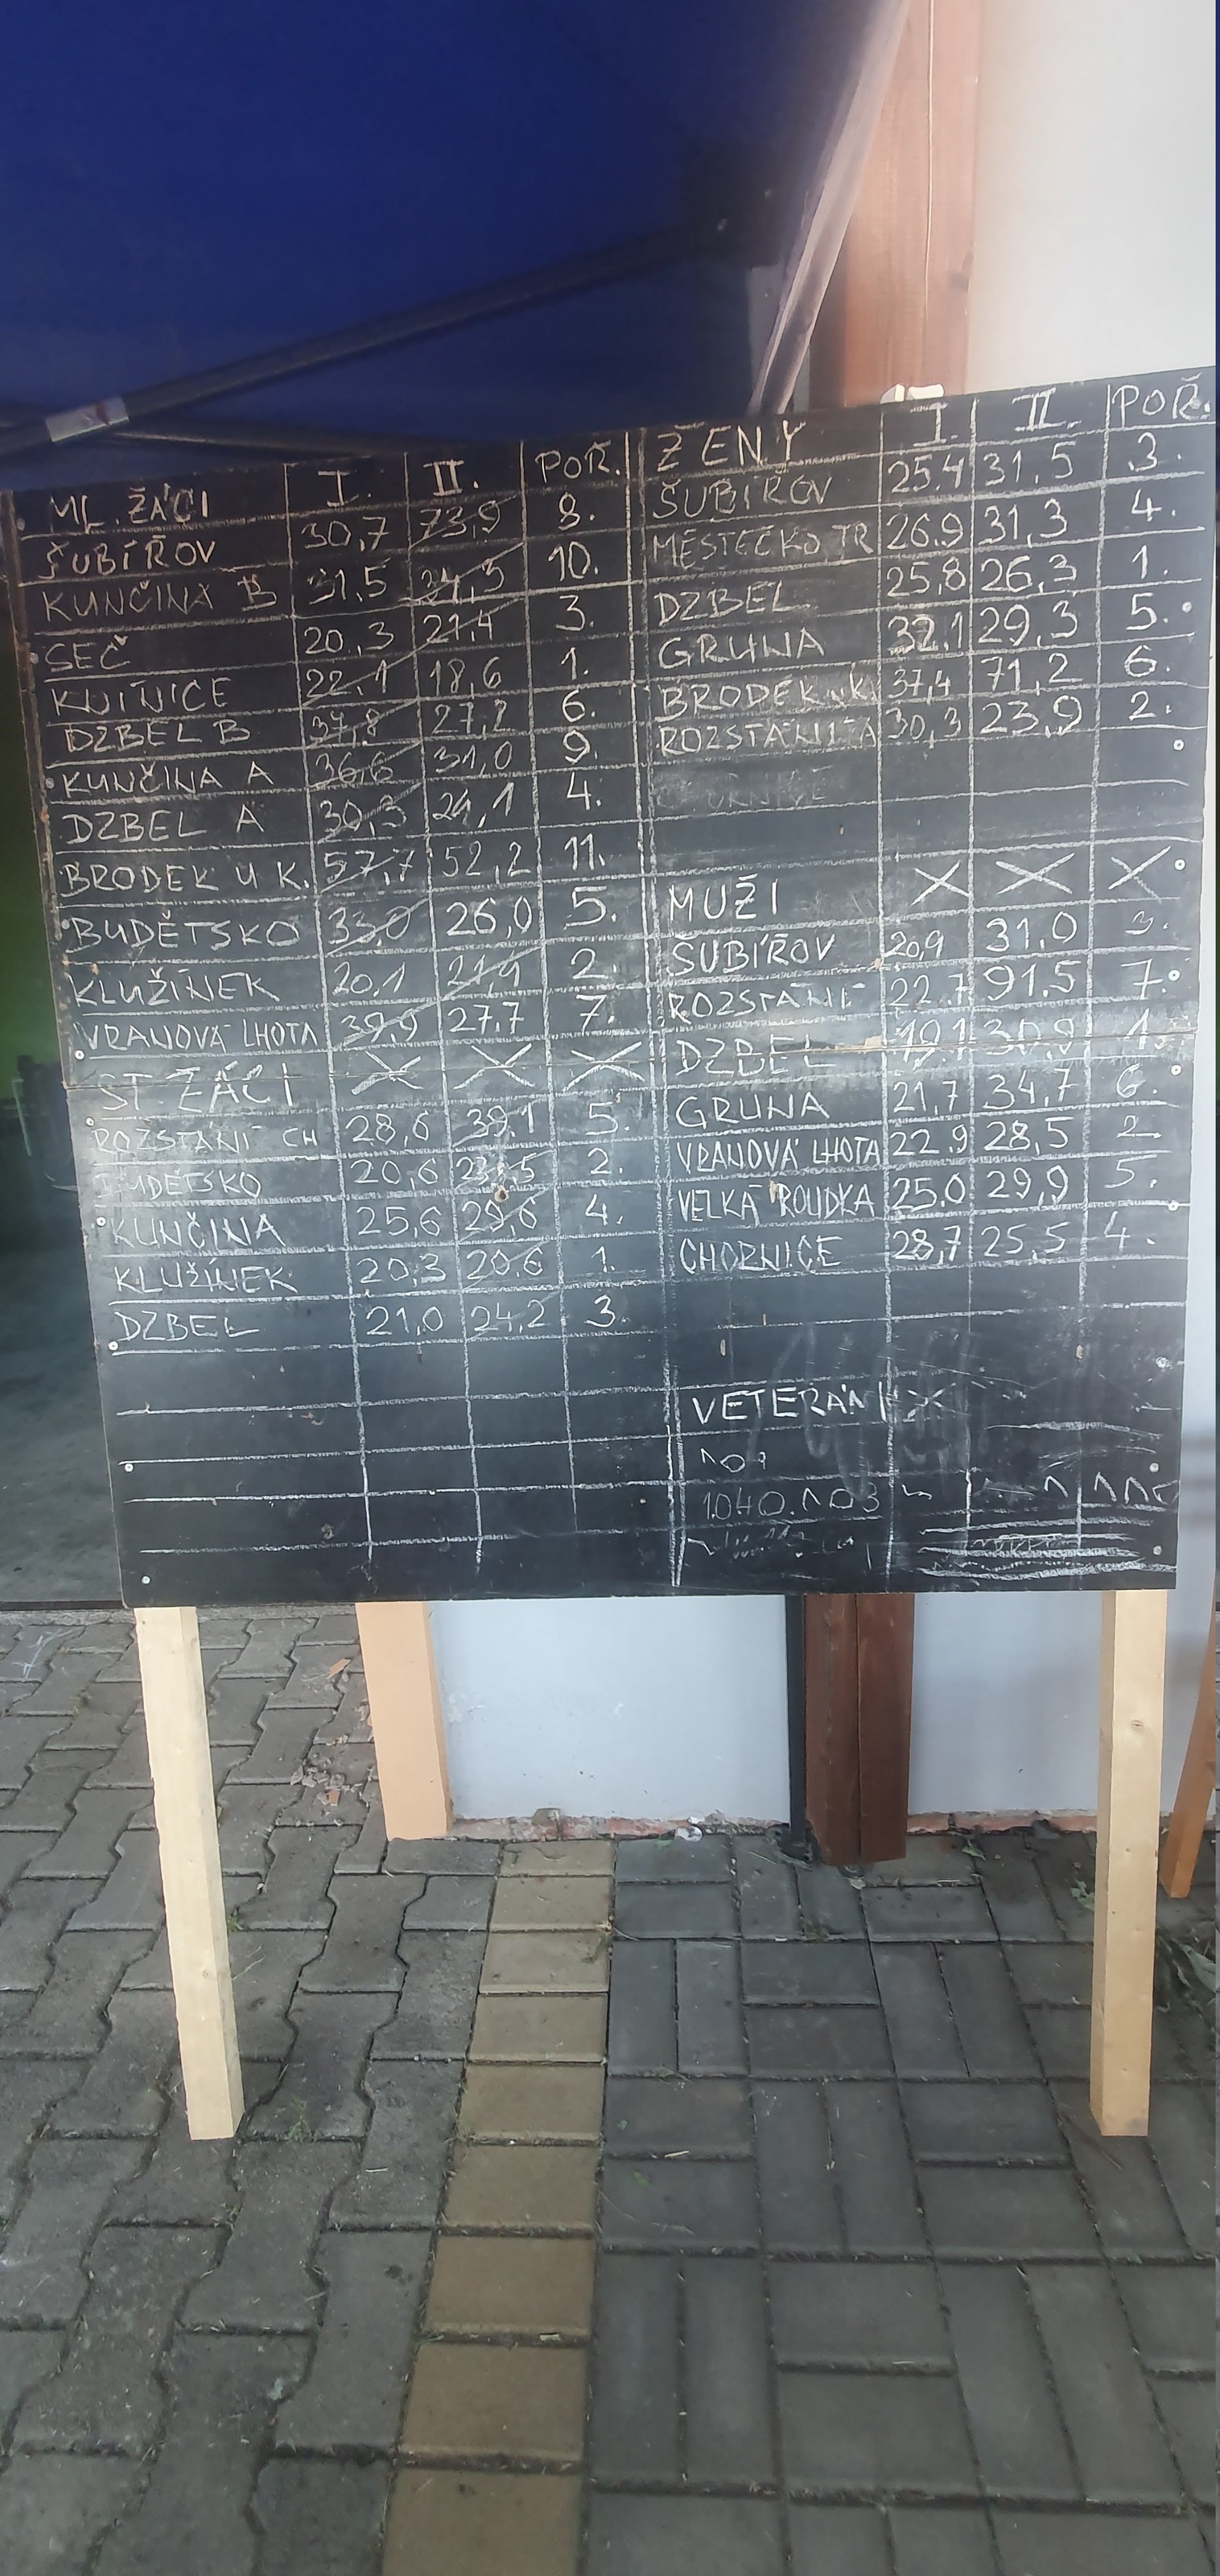 ML. ŽÁCI I. II. POŘ.
ŠUBÍŘOV 30,7 73,9 8.
KUNČINA B 31,5 34,5 10.
SEČ 20,3 21,4 3.
KNÍNICE 22,1 18,6 1.
DZBEL B 37,8 27,2 6.
KUNČINA A 36,6 31,0 9.
DZBEL A 30,3 24,1 4.
BRODEK U K. 57,7 52,2 11.
BUDĚTSKO 33,0 26,0 5.
KLUŽÍNEK 20,1 21,4 2.
VRANOVÁ LHOTA 39,9 27,7 7.
ST. ŽÁCI X X X
ROZSTÁNÍ CH 28,6 39,1 5.
BUDĚTSKO 20,6 2.
KUNČINA 25,6 29,6 4.
KLUŽÍNEK 20,3 20,6 1.
DZBEL 21,0 24,2 3.
ŽENY I. II. POŘ.
ŠUBÍŘOV 25,4 31,5 3.
MĚSTEČKO TR 26,9 31,3 4.
DZBEL 25,8 26,3 1.
GRUNA 32,1 29,3 5.
BRODEK U K. 37,4 71,2 6.
ROZSTÁNÍ 30,3 23,9 2.
MUŽI X X X
ŠUBÍŘOV 20,9 31,0 3.
ROZSTÁNÍ 22,7 91,5 7.
DZBEL 19,1 30,9 1.
GRUNA 21,7 34,7 6.
VRANOVÁ LHOTA 22,9 28,5 2.
VELKÁ ROUDKA 25,0 29,9 5.
CHORNICE 28,7 25,5 4.
VETERÁNI X